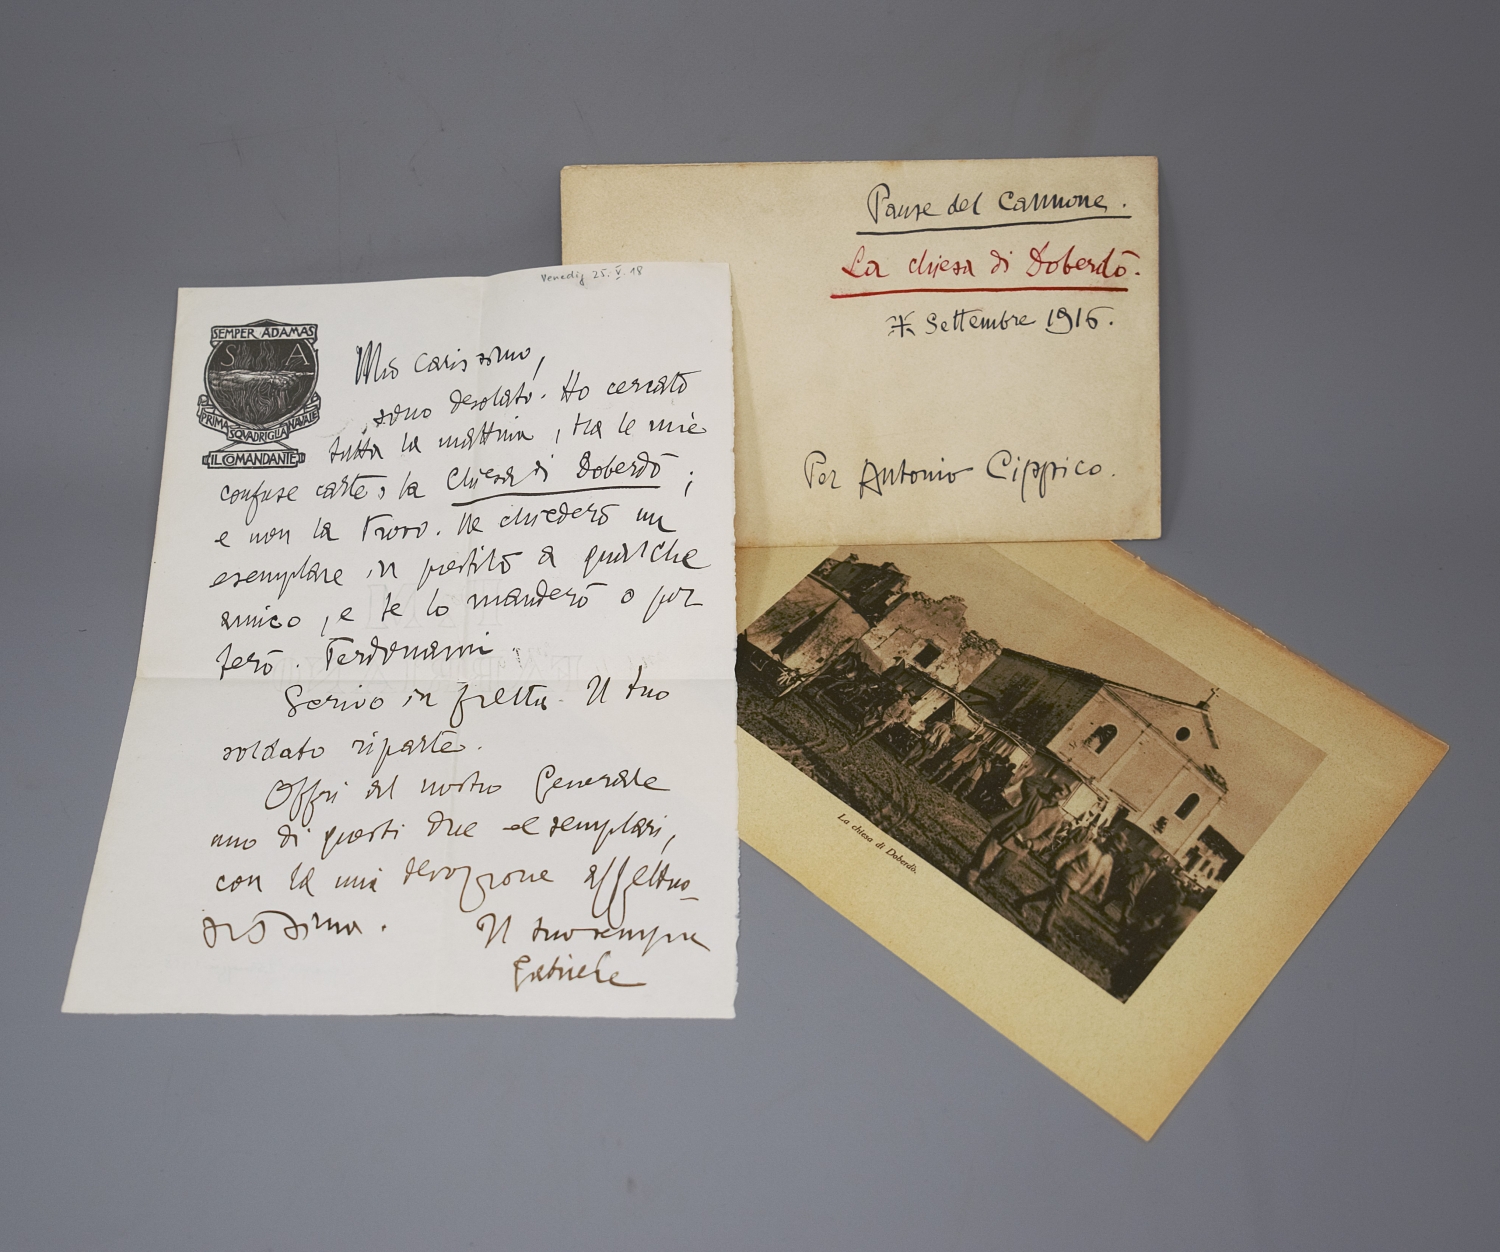 Venedig 25. V. 18
SEMPER ADAMAS
S A
PRIMA SQVADRIGLIA NAVALE
IL COMANDANTE
Mio carissimo,
sono desolato. Ho cercato
tutta la mattina, tra le mie
confuse carte, la Chiesa di Doberdò;
e non la trovo. Ne chiederò un
esemplare in prestito a qualche
amico, e te lo manderò o por
terò.
Scrivo in fretta. Il tuo
soldato riparte.
Offri al nostro Generale
uno di questi due esemplari,
con la mia devozione affettuo-
sissima. Il tuo sempre
Gabriele
Pause del Cannone.
La chiesa di Doberdò.
Settembre 1916.
Per Antonio Cippico.
La chiesa di Doberdò.